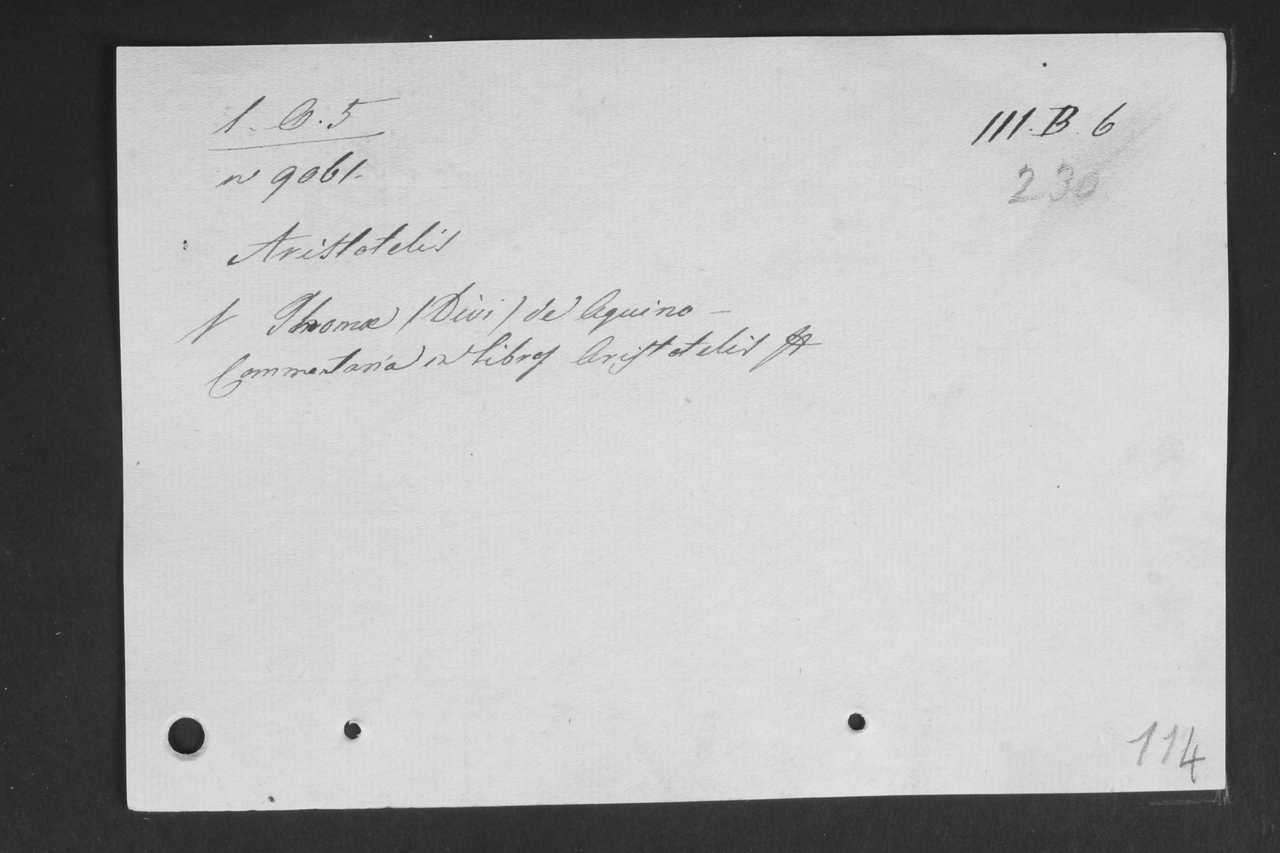 1. B. 5
III. B. 6
n 9061.
230
Aristotelis
V Thomæ (Divi) de Aquino —
Commentaria in libros Aristotelis
114